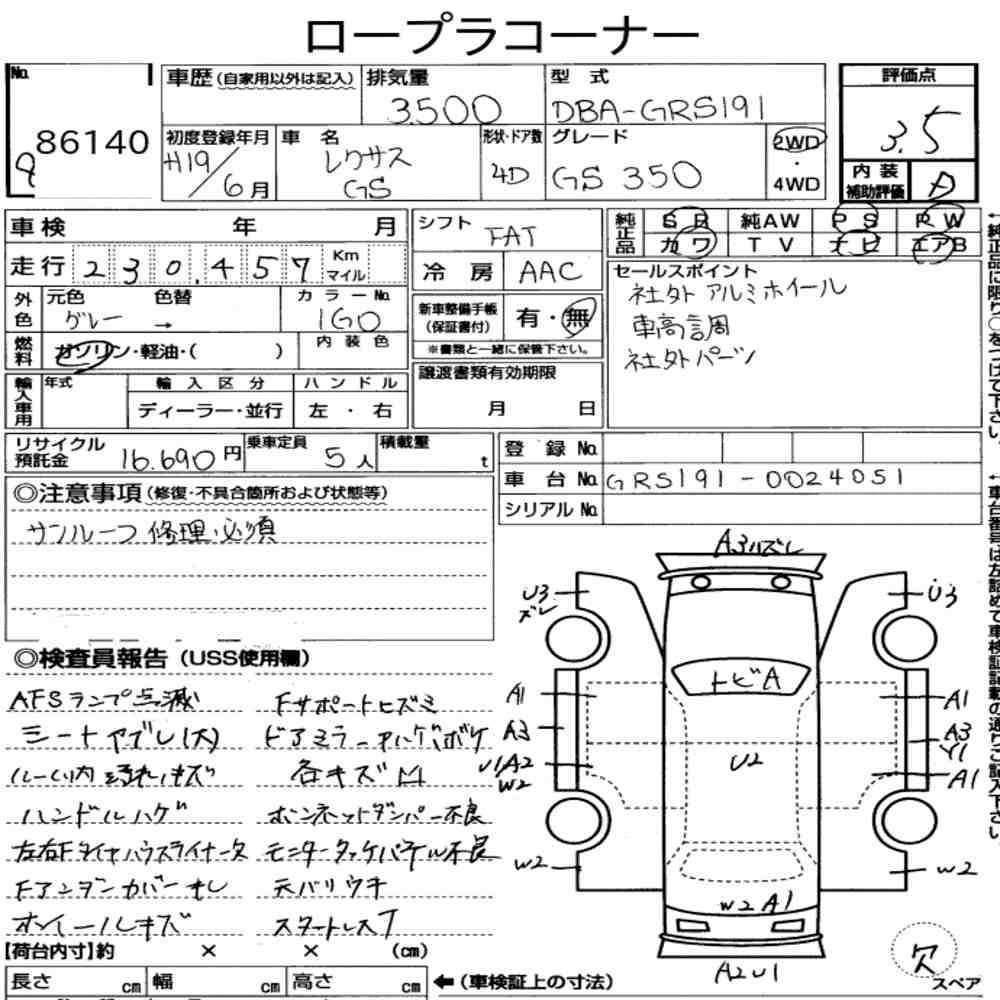 ロープラコーナー
No. 86140
車歴 (自家用以外は記入) 排気量 3500
型式 DBA-GRS191
評価点 3.5
初度登録年月 H19/6月
車名 レクサス GS
形状・ドア数 4D
グレード GS 350
2WD・4WD
内装補助評価 D
車検 年 月
シフト FAT
純正品 SR 純AW PS PW
カワ TV ナビ エアB
走行 230,457 Km マイル
冷房 AAC
セールスポイント
社外アルミホイール
車高調
社外パーツ
外色 元色 グレー 色替 → カラーNo. 1G0
新車整備手帳 (保証書付) 有・無
※書類と一緒に保管下さい。
燃料 ガソリン・軽油・( ) 内装色
譲渡書類有効期限 月 日
輸入車用 年式 輸入区分 ハンドル
ディーラー・並行 左・右
リサイクル預託金 16.690円 乗車定員 5人 積載量 t
登録No.
車台No. GRS191-0024051
シリアルNo.
◎注意事項 (修復・不具合箇所および状態等)
サンルーフ修理必須
◎検査員報告 (USS使用欄)
AFSランプ点滅 Fサポートヒズミ
シートヤブレ(大)
ルーム内汚れキズ 各キズ凹
ハンドルハゲ ボンネットダンパー不良
左右Fタイヤハウスライナー欠 モニタータッチパネル不良
Fアンダーカバーナシ 天バリウキ
ホイールキズ
A3ハズレ
U3 ズレ
U3
トビA
A1
A1
A3
A3 Y1
U2
U1A2 W2
A1
W2
W2
W2 A1
A2U1
欠
スペア
【荷台内寸】約 × × (cm)
長さ cm 幅 cm 高さ cm
← (車検証上の寸法)